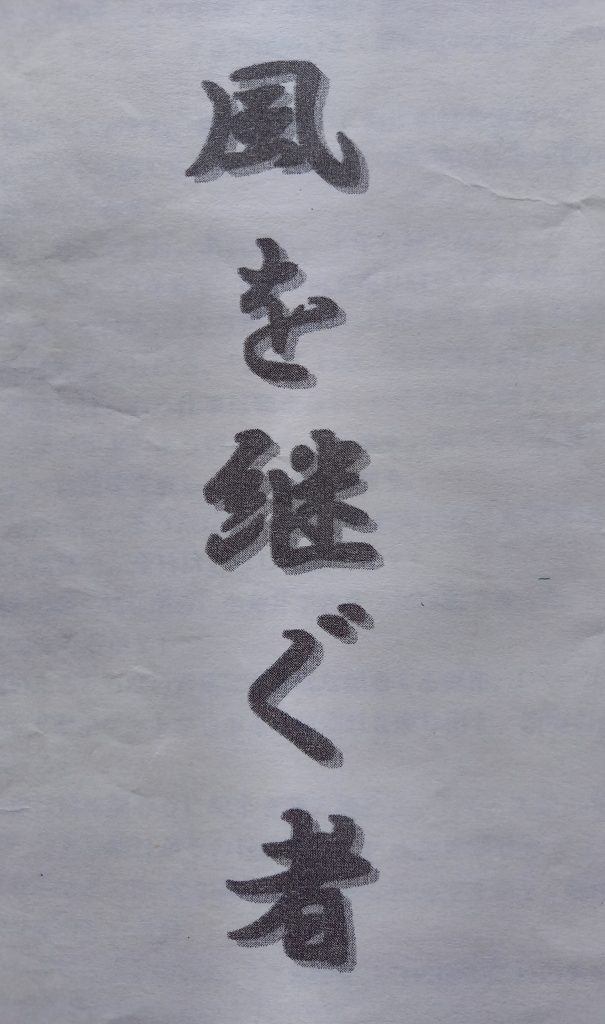 風を継ぐ者